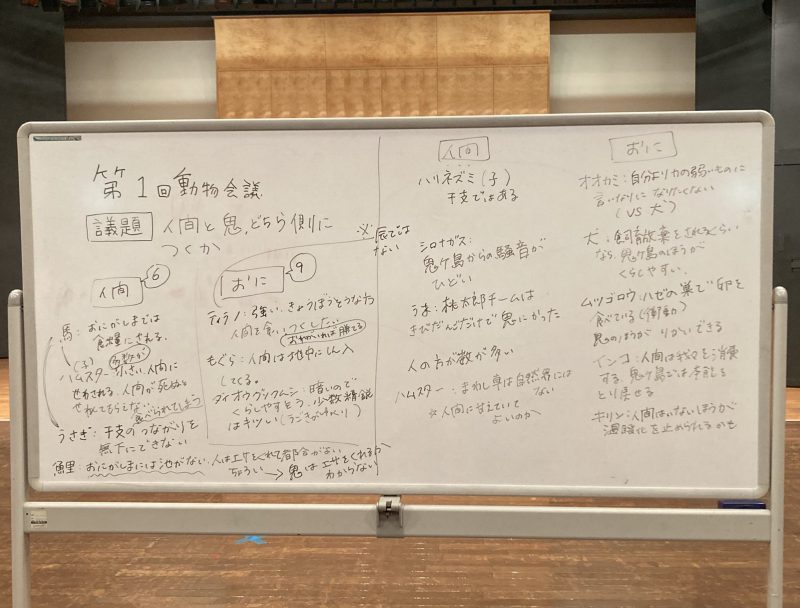 第1回動物会議
議題 人間と鬼、どちら側に
つくか
人間 6
馬：おにがしまでは
食糧にされる。
(子)
多数が
ハムスター：小さい。人間に
せわされる。人間が死ぬと
せわしてもらえない
食べられてしまう
うさぎ：干支のつながりを
無下にできない
鯉：おにがしまには池がない。人はエサをくれて都合がよい
ちょろい→鬼はエサをくれるか
わからない
おに 9
※辰では
ない
ティラノ：強い。きょうぼうそうな方
人間を食いつくしたい
おやかいれば勝てる
もぐら：人間は地中に侵入
してくる。
ダイオウグソクムシ：暗いので
くらしやすそう。少数精鋭
はキツい(うごきがゆっくり)
人間
ハリネズミ(子)
干支ではある
シロナガス：
鬼ヶ島からの騒音が
ひどい
うま：桃太郎チームは
きびだんごだけで鬼にかった
人の方が数が多い
ハムスター：まわし車は自然界には
ない
※人間に甘えていて
よいのか
おに
オオカミ：自分より力の弱いものに
言いなりになりたくない
(VS 犬)
犬：飼育放棄をされるくらい
なら、鬼ヶ島のほうが
くらしやすい。
ムツゴロウ：ハゼの巣で卵を
食べている(衝動)
鬼のほうがりかいできる
インコ：人間は我々を消費
する。鬼ヶ島では本能を
とり戻せる
キリン：人間はいないほうが
温暖化を止められるかも